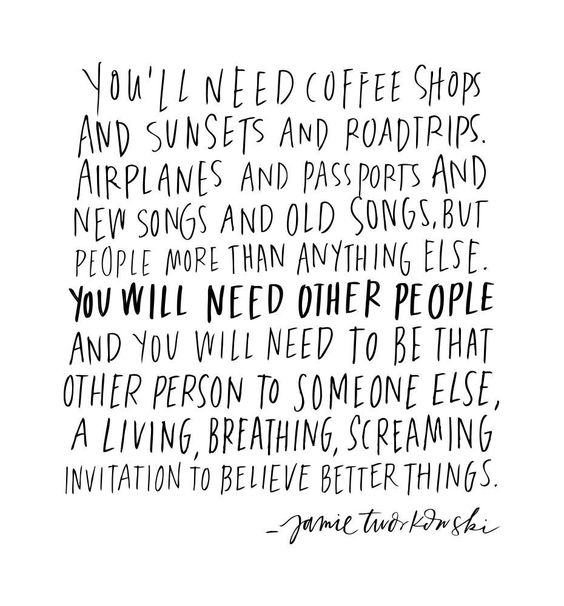 YOU'LL NEED COFFEE SHOPS
AND SUNSETS AND ROADTRIPS.
AIRPLANES AND PASSPORTS AND
NEW SONGS AND OLD SONGS, BUT
PEOPLE MORE THAN ANYTHING ELSE.
YOU WILL NEED OTHER PEOPLE
AND YOU WILL NEED TO BE THAT
OTHER PERSON TO SOMEONE ELSE,
A LIVING, BREATHING, SCREAMING
INVITATION TO BELIEVE BETTER THINGS.
– jamie tworkowski